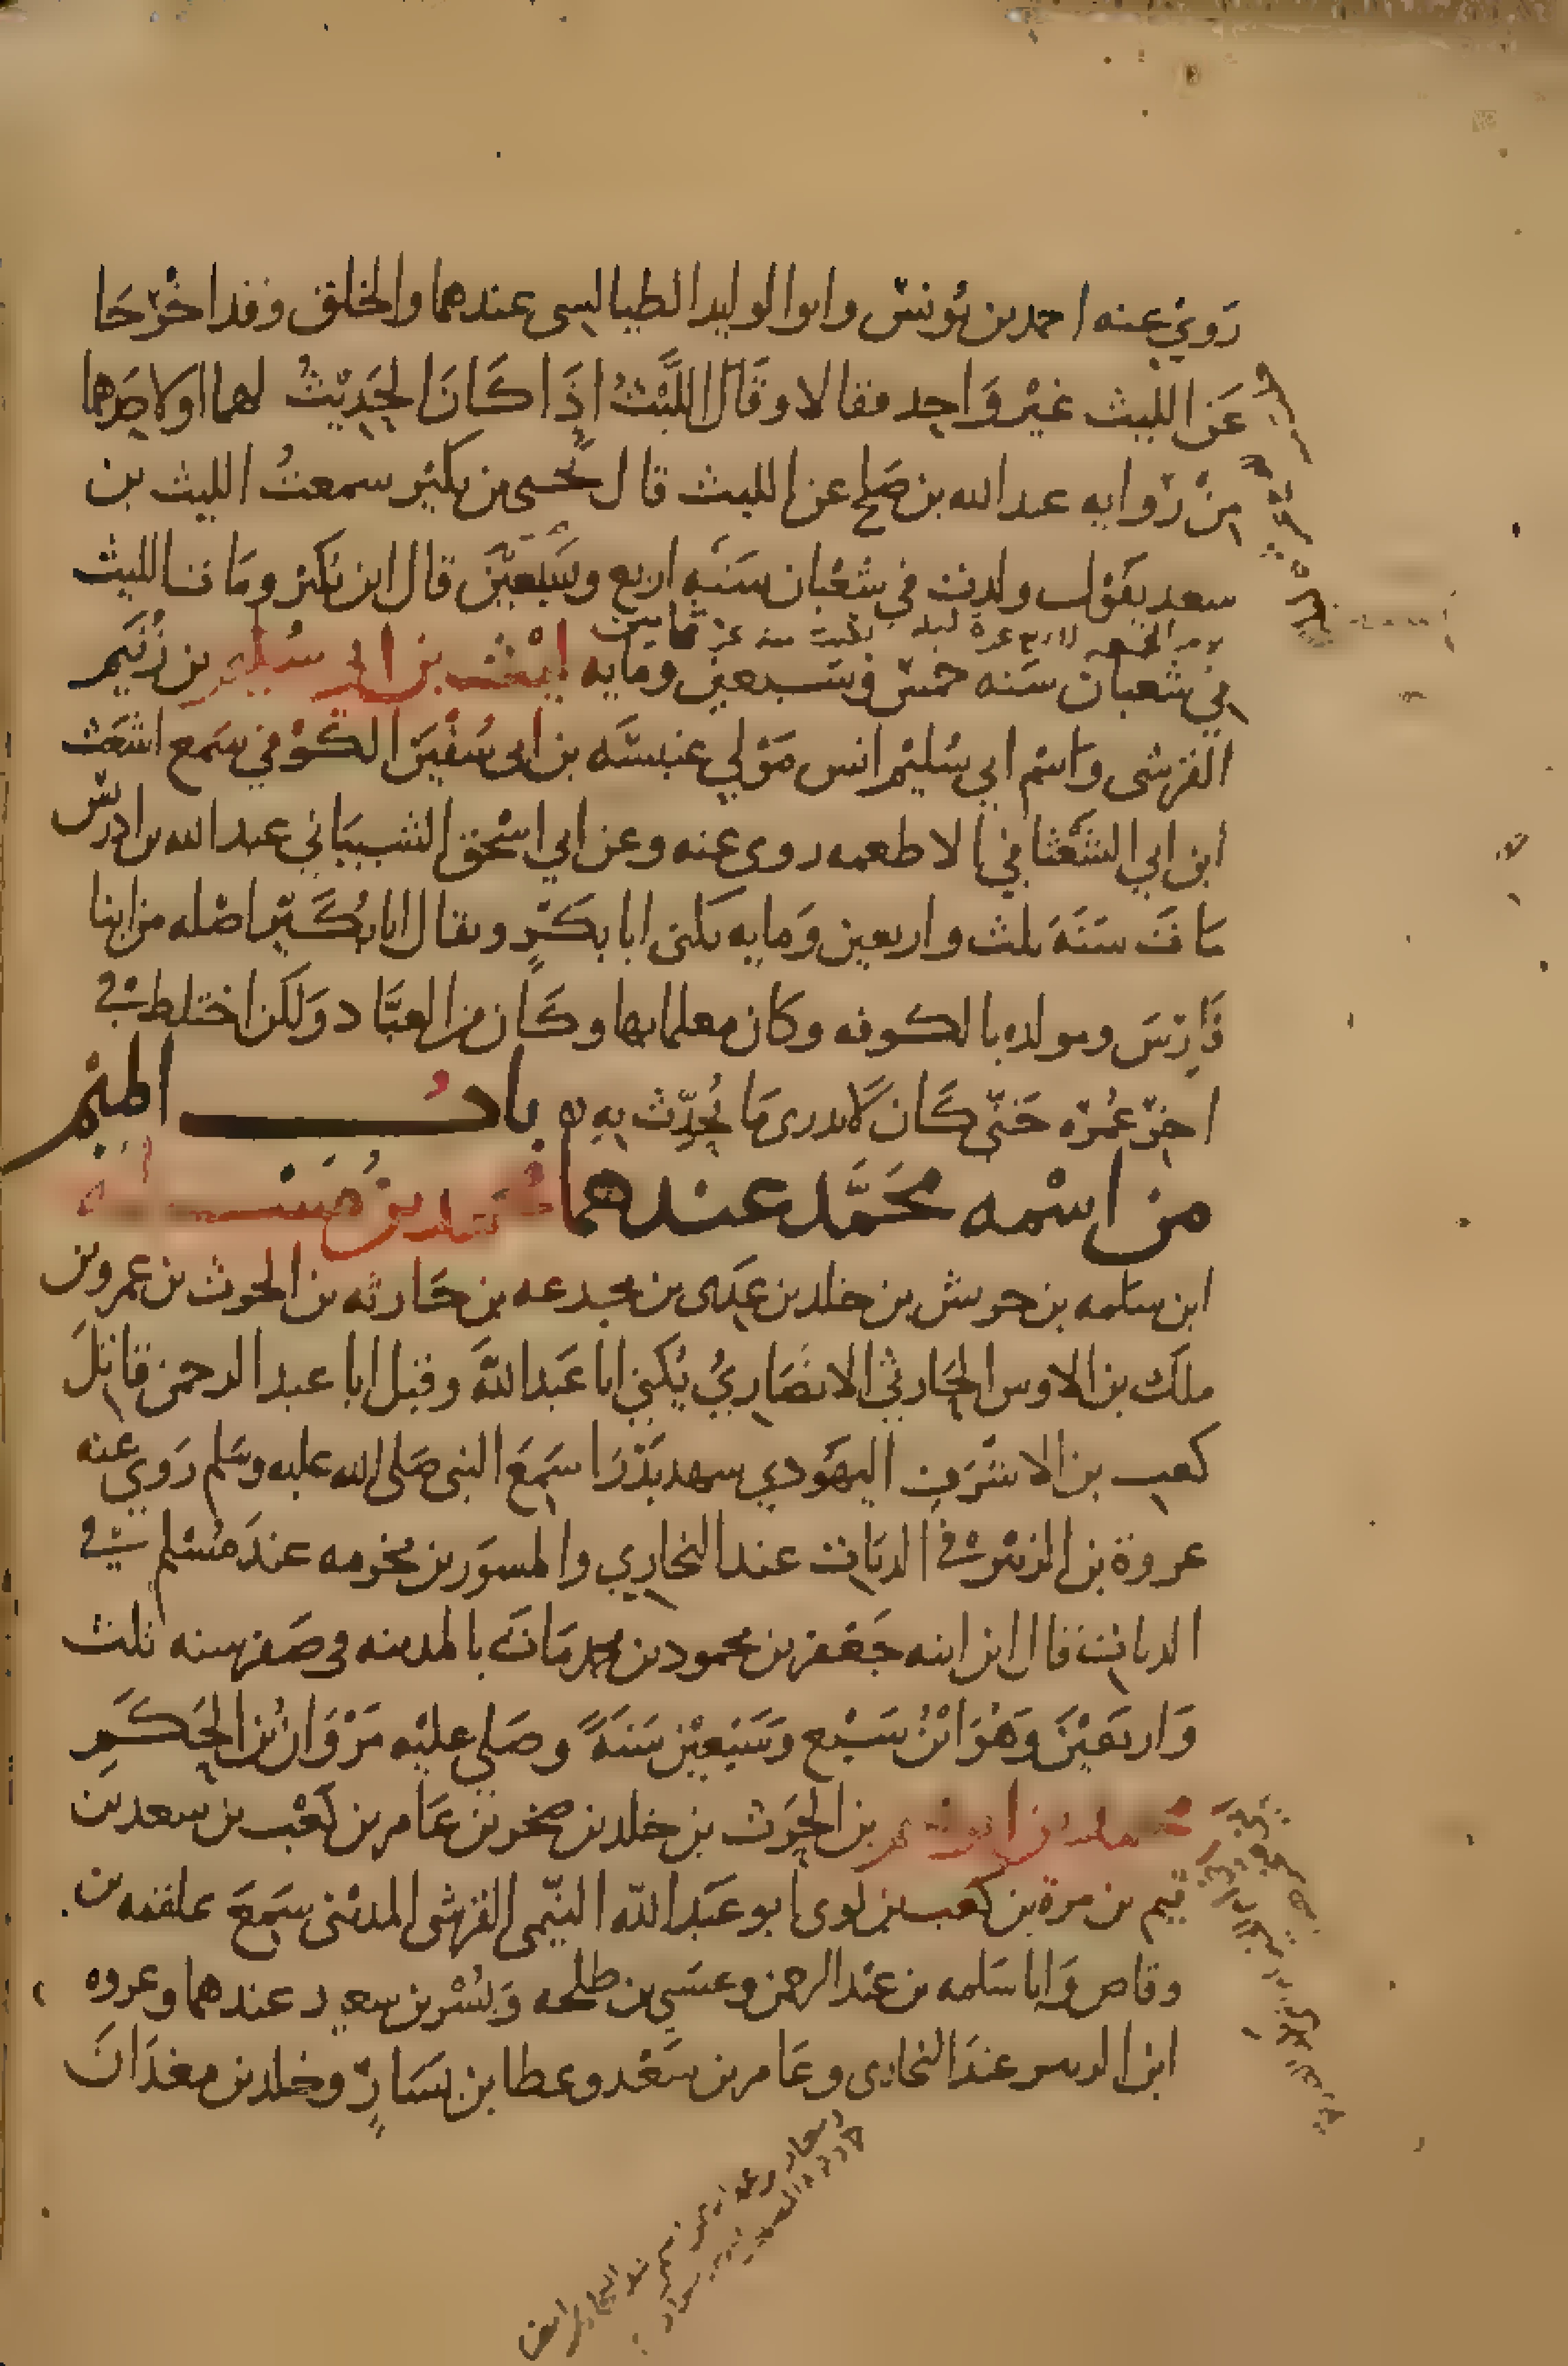 روى عنه احمد بن يونس وابوا الوليد الطيالسى عندهما والخلق وقد اخرجا
عن الليث غير واحد فقالا وقال الليث اذا كان الحديث لهما او لاحدهما
من روايه عبد الله بن صلح عن الليث قال يحيى بن بكير سمعت الليث بن
سعد يقول ولدت في شعبان سنه اربع وتسعين قال ابن بكير ومات الليث
يوم الجمعه ليله بقيت من
في شعبان سنه خمس وسبعين ومايه ليث بن ابي سليم بن زنيم
القرشى واسم ابي سليم انس مولي عنبسه بن ابى سفين الكوفي سمع اشعث
ابن ابي الشعثا في الاطعمه روى عنه وعن ابي اسحق الشيباني عبد الله بن ادريس
مات سنه ثلث واربعين ومايه يكنى ابا بكر ويقال ابا بكير اصله من ابنا
فارس ومولده بالكوفه وكان معلما بها وكان من العباد ولكن اختلط في
اخر عمره حتى كان لا يدرى ما يحدث به باب الميم
من اسمه محمد عندهما محمد بن مسلمه
ابن سلمه بن حريش بن خلد بن عدى بن مجدعه بن حارثه بن الحرث بن عمرو بن
ملك بن الاوس الحارثي الانصاري يكني ابا عبد الله وقيل ابا عبد الرحمن قاتل
كعب بن الاشرف اليهودي شهد بدرا سمع النبى صلى الله عليه وسلم روي عنه
عروة بن الزبير في الديات عند البخاري والمسور بن مخرمه عند مسلم في
الديات قال ابن ابنه جعفر بن محمود بن محمد مات بالمدينه في صفر سنه ثلث
واربعين وهو ابن سبع وسبعين سنة وصلي عليه مروان بن الحكم
محمد بن ابرهيم بن الحرث بن خلد بن صخر بن عامر بن كعب بن سعد بن
تيم بن مرة بن كعب بن لوى ابو عبد الله التيمى القرشى المدنى سمع علقمه بن
وقاص وابا سلمه بن عبد الرحمن وعيسي بن طلحه وبسر بن سعيد عندهما وعروه
ابن الزبير عند البخارى وعامر بن سعد وعطا بن يسار وخلد بن معدان